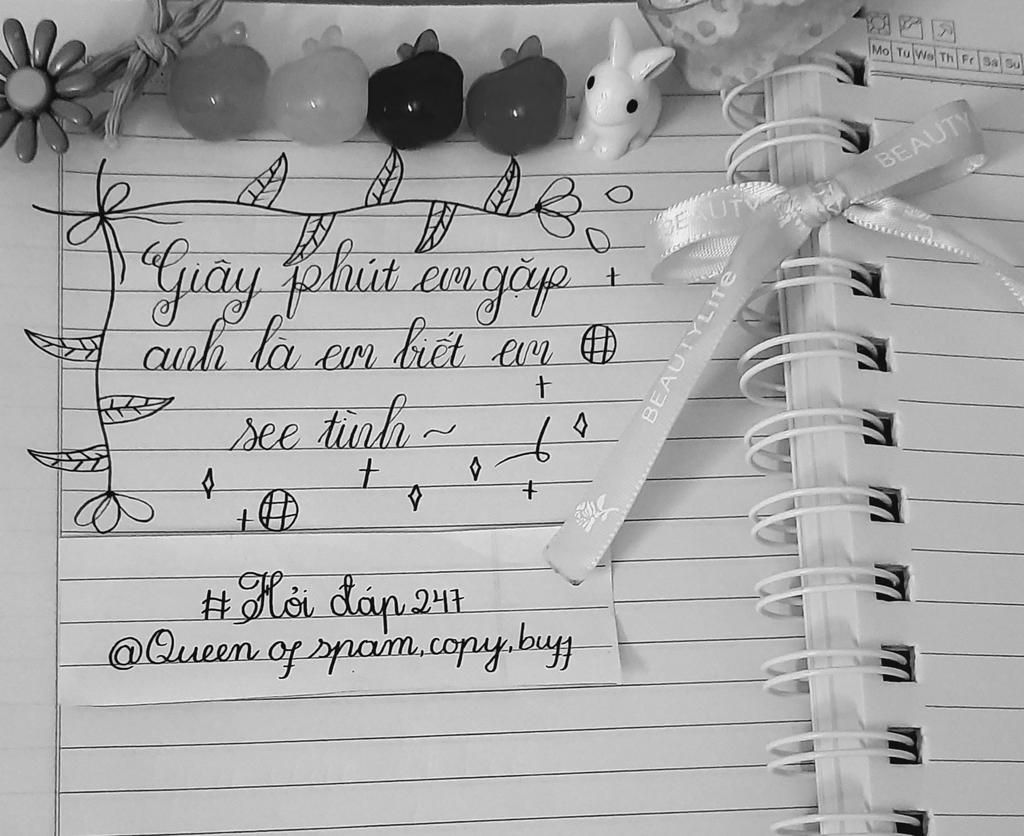 Mo Tu We Th Fr Sa Su
BEAUTY
BEAUTY
BEAUTYLife
"Giây phút em gặp
anh là em biết em
see tình ~
#Hỏi đáp 247
@Queen of spam, copy, buff